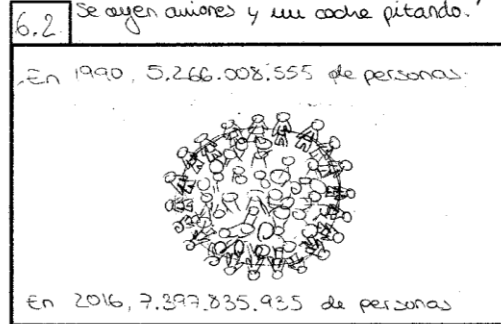 6.2
Se oyen aviones y un coche pitando.
En 1990, 5.266.008.555 de personas.
En 2016, 7.397.835.935 de personas